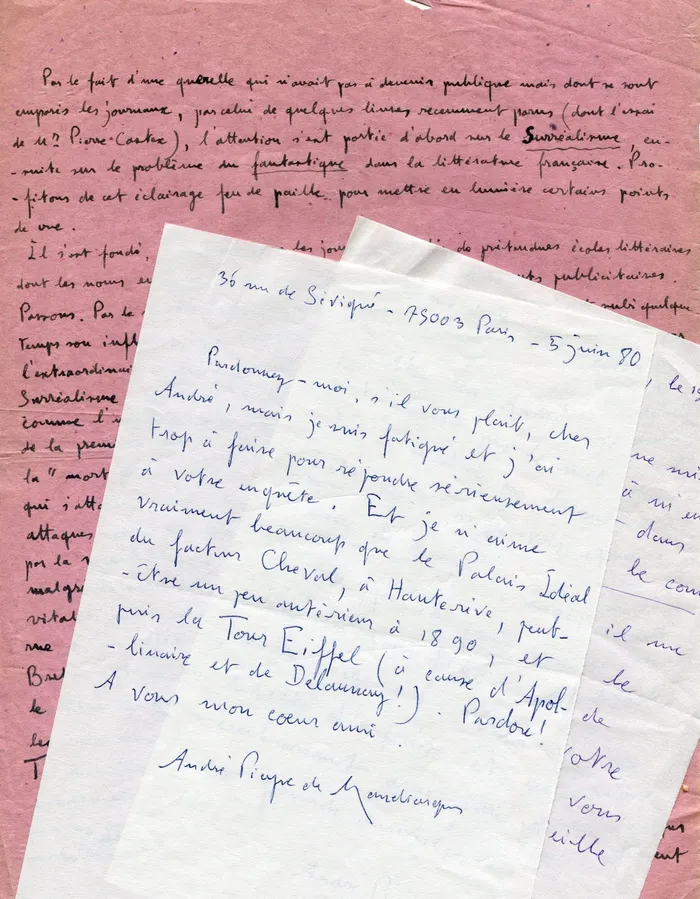 Par le fait d'une querelle qui n'avait pas à devenir publique mais dont se sont
emparés les journaux, par celui de quelques livres récemment parus (dont l'essai
de Mr Pierre-Castex), l'attention s'est portée d'abord sur le Surréalisme, en-
-suite sur le problème du fantastique dans la littérature française. Pro-
-fitons de cet éclairage feu de paille pour mettre en lumière certains points
de vue.
Il s'est fondé, les de prétendues écoles littéraires
dont les noms publicitaires.
Passons. Par le subi quelque
temps son infl
l'extraordinai
Surréalisme
comme l'
de la prem
la "mort
qui s'atta
attaques
par la
malgr
vital
rue
Bret
le
les
T
36 rue de Sévigné - 75003 Paris - 5 juin 80
Pardonnez-moi, s'il vous plaît, cher
André, mais je suis fatigué et j'ai
trop à faire pour répondre sérieusement
à votre enquête. Et je n'aime
vraiment beaucoup que le Palais Idéal
du facteur Cheval, à Hauterive, peut-
-être un peu antérieur à 1890, et
puis la Tour Eiffel (à cause d'Apol-
-linaire et de Delaunay!). Pardon!
A vous mon coeur ami.
André Pieyre de Mandiargues
, le 1
ne
à
dans
le com
il me
le
de
votre
vous
eille